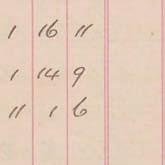 1 16 11
1 14 9
11 1 6